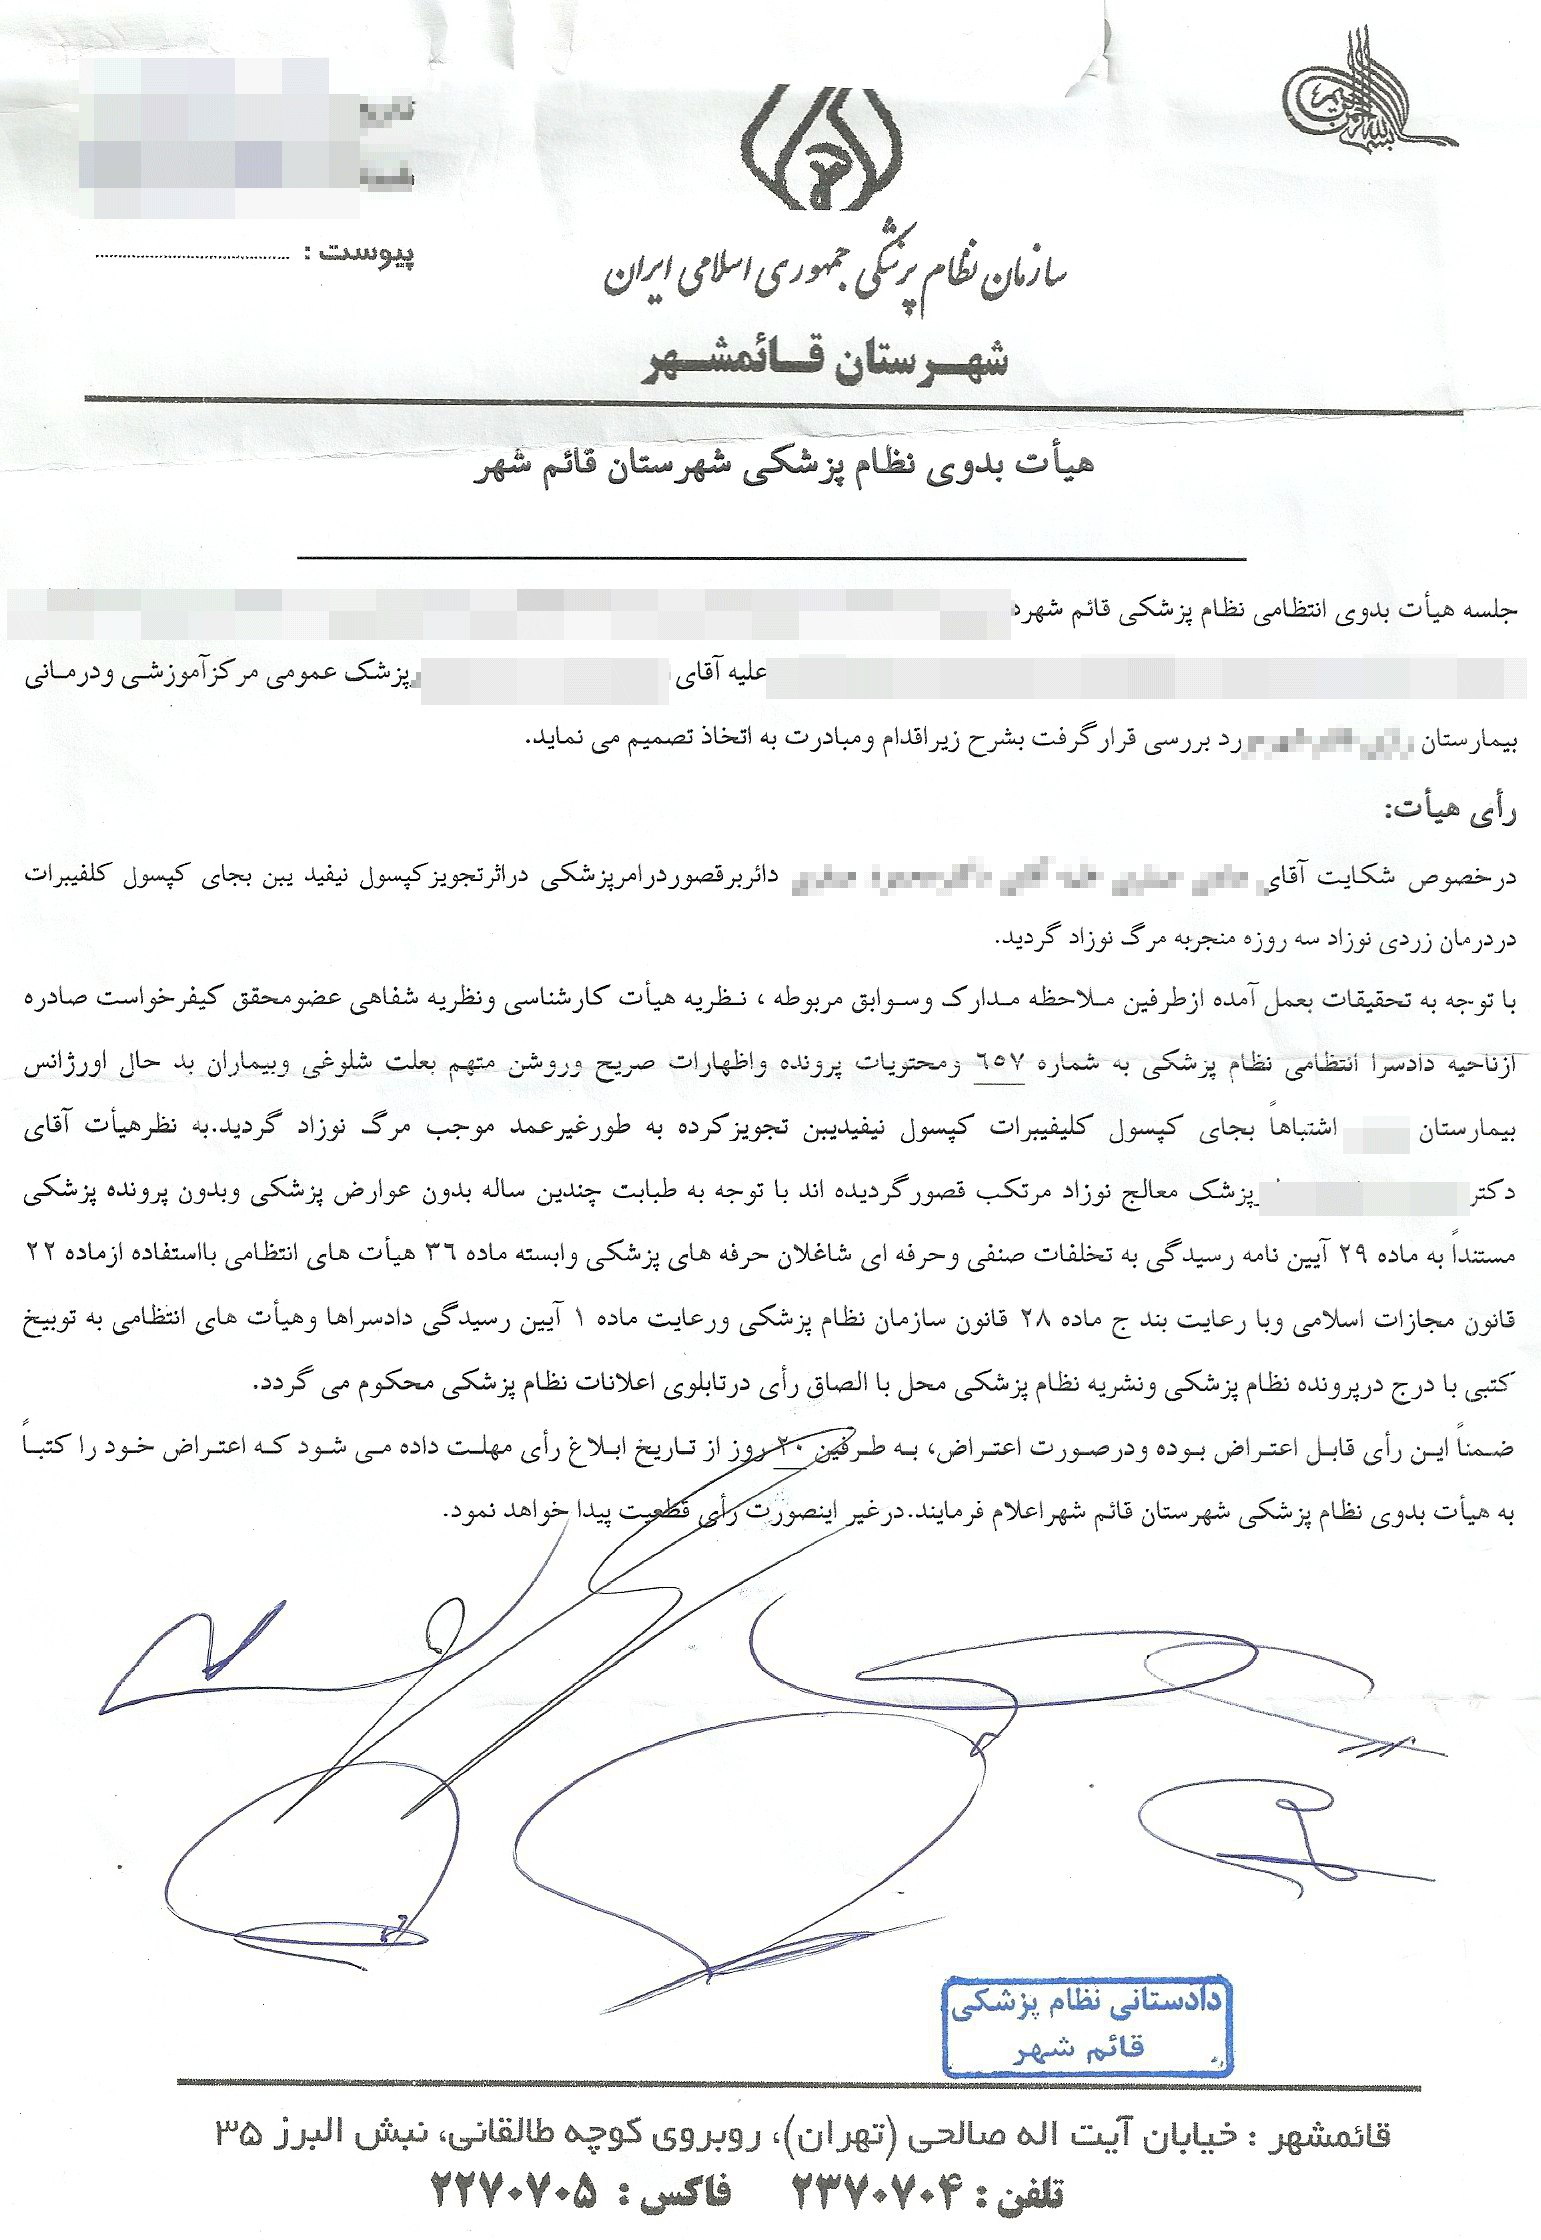 تاریخ
پیوست :
سازمان نظام پزشکی جمهوری اسلامی ایران
شهرستان قائمشهر
هیأت بدوی نظام پزشکی شهرستان قائم شهر
جلسه هیأت بدوی انتظامی نظام پزشکی قائم شهرد
علیه آقای پزشک عمومی مرکزآموزشی ودرمانی
بیمارستان رد بررسی قرارگرفت بشرح زیراقدام ومبادرت به اتخاذ تصمیم می نماید.
رأی هیأت:
درخصوص شکایت آقای دائربرقصوردرامرپزشکی دراثرتجویزکپسول نیفید یبن بجای کپسول کلفیبرات
دردرمان زردی نوزاد سه روزه منجربه مرگ نوزاد گردید.
با توجه به تحقیقات بعمل آمده ازطرفین ملاحظه مدارک وسوابق مربوطه ، نظریه هیأت کارشناسی ونظریه شفاهی عضومحقق کیفرخواست صادره
ازناحیه دادسرا انتظامی نظام پزشکی به شماره ٦٥٧ ومحتویات پرونده واظهارات صریح وروشن متهم بعلت شلوغی وبیماران بد حال اورژانس
بیمارستان اشتباهاً بجای کپسول کلیفیبرات کپسول نیفیدیبن تجویزکرده به طورغیرعمد موجب مرگ نوزاد گردید.به نظرهیأت آقای
دکتر پزشک معالج نوزاد مرتکب قصورگردیده اند با توجه به طبابت چندین ساله بدون عوارض پزشکی وبدون پرونده پزشکی
مستنداً به ماده ٢٩ آیین نامه رسیدگی به تخلفات صنفی وحرفه ای شاغلان حرفه های پزشکی وابسته ماده ٣٦ هیأت های انتظامی بااستفاده ازماده ٢٢
قانون مجازات اسلامی وبا رعایت بند ج ماده ٢٨ قانون سازمان نظام پزشکی ورعایت ماده ١ آیین رسیدگی دادسراها وهیأت های انتظامی به توبیخ
کتبی با درج درپرونده نظام پزشکی ونشریه نظام پزشکی محل با الصاق رأی درتابلوی اعلانات نظام پزشکی محکوم می گردد.
ضمناً این رأی قابل اعتراض بوده ودرصورت اعتراض، به طرفین ٢٠ روز از تاریخ ابلاغ رأی مهلت داده می شود که اعتراض خود را کتباً
به هیأت بدوی نظام پزشکی شهرستان قائم شهراعلام فرمایند.درغیر اینصورت رأی قطعیت پیدا خواهد نمود.
دادستانی نظام پزشکی
قائم شهر
قائمشهر : خیابان آیت اله صالحی (تهران)، روبروی کوچه طالقانی، نبش البرز ۳۵
تلفن : ۲۳۷۰۷۰۴ فاکس : ۲۲۷۰۷۰۵